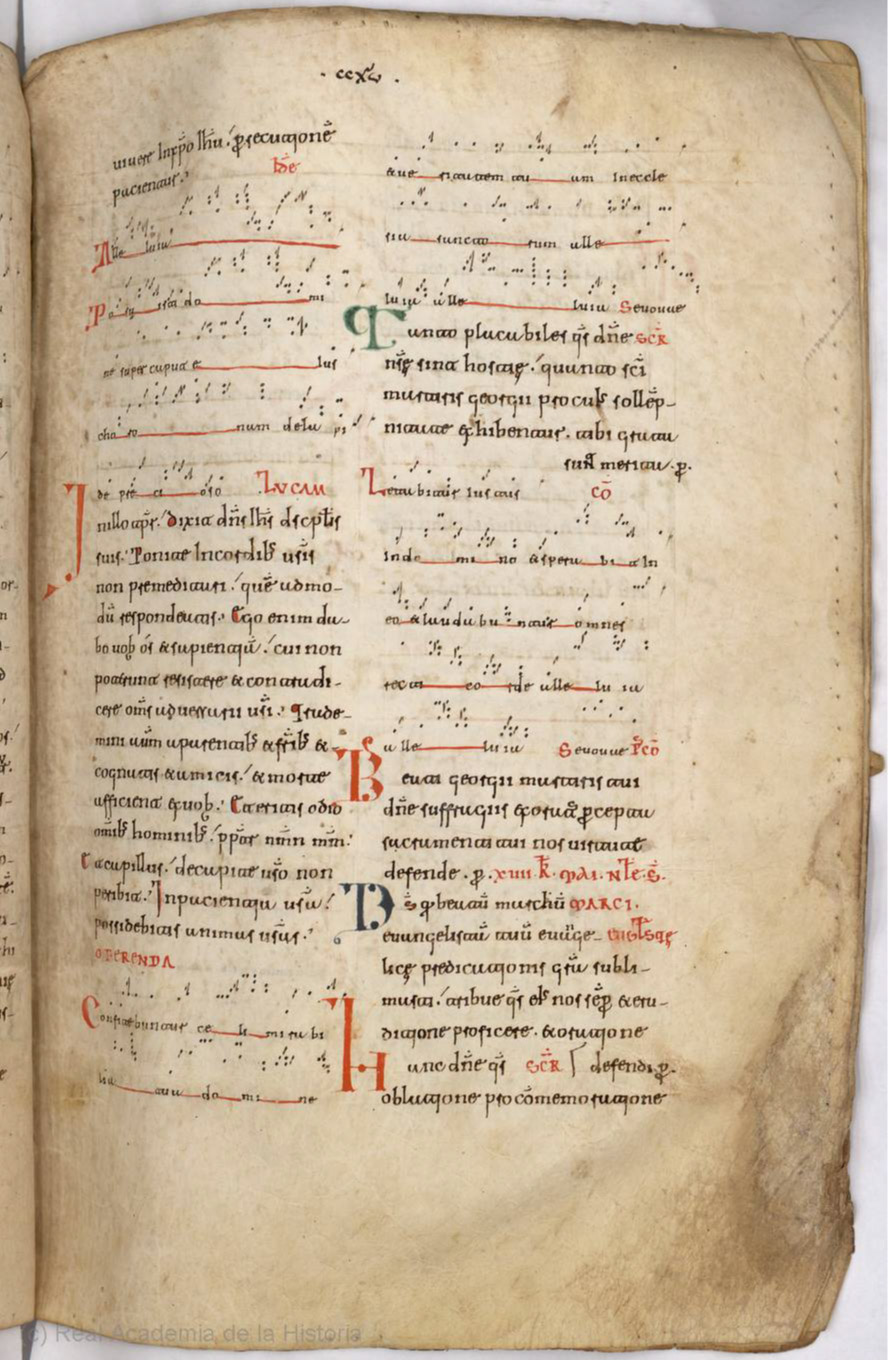 · ccxv ·
uiuere In xp̄o Ihū · p̄secutionē
pacientur·
Vs̄e
Alle luia
Posuisti domi
ne super caput eius
coronam de lapi
de precioso LUCAM
In illo tp̄r· dixit dn̄s Ihs discplīs
suis· Ponite In cordib; ur̄is
non premeditari · quē admo-
dū respondeatis· Ego enim da-
bo uob os & sapientiā · cui non
poterunt resistere & contradi-
cere om̄s aduersarii ur̄i· Trade-
mini autem a parentib; & fr̄ib; &
cognatis & amicis · & morte
afficient ex uob· Et eritis odio
om̄ib; hominib; · ppter nm̄n mm̄·
Et capillus · de capite ur̄o non
peribit· In pacientia ur̄a ·
possidebitis animas ur̄as·
OFERENDA
Confitebuntur celi mirabi
lia tua domine
& ueritatem tuam In eccle
sia sanctorum alle
luia alle luia Seuouae
Tuatn placabiles qs̄ dn̄e SCR̄
nr̄ę sint hostię · quando sc̄i
martiris georgii pro cuius sollēp-
nitate exhibentur· tibi grata
Letabitur Iustus CŌ
In domino & sperabit In
eo & laudabuntur omnes
recti corde alle luia
alle luia Seuouae P̄CŌ
Beati georgii martiris tui
dn̄e suffragiis exoratꝰ p̄cepta
sacramenta tui nos uirtute
defende· p̄· xiiii· K̄· MAI· NT̄LE· S̄·
Ds̄ q beatū marchū MARCI·
euangelistā tuū euāge- EUGLSTE
licę predicationis gr̄a subli-
masti· tribue qs̄ eīus nos sēp̄ & eru-
ditione proficere· & oratione
Hanc dn̄e qs̄ SCR̄ defendi p̄·
oblatione pro cōmemoratione